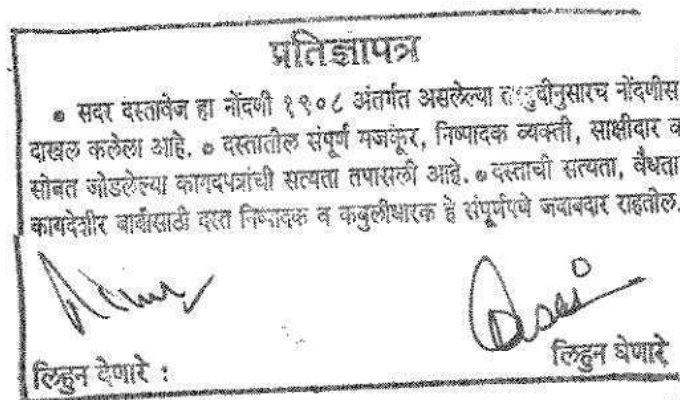 प्रतिज्ञापत्र
● सदर दस्तावेज हा नोंदणी १९०८ अंतर्गत असलेल्या तरतुदीनुसारच नोंदणीस
दाखल कलेला आहे. ● दस्तातील संपूर्ण मजकूर, निष्पादक व्यक्ती, साक्षीदार व
सोबत जोडलेल्या कागदपत्रांची सत्यता तपासली आहे. ● दस्ताची सत्यता, वैधता
कायदेशीर बाबीसाठी दस्त निष्पादक व कबुलीधारक हे संपूर्णपणे जबाबदार राहतील.
लिहुन देणारे : लिहुन घेणारे